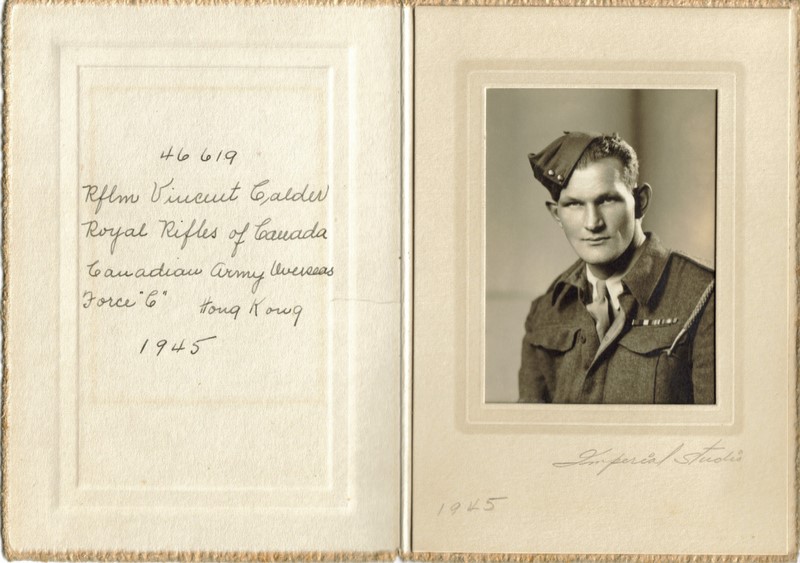 46619
Rflm Vincent Calder
Royal Rifles of Canada
Canadian Army Overseas
Force "C" Hong Kong
1945
Imperial Studio
1945